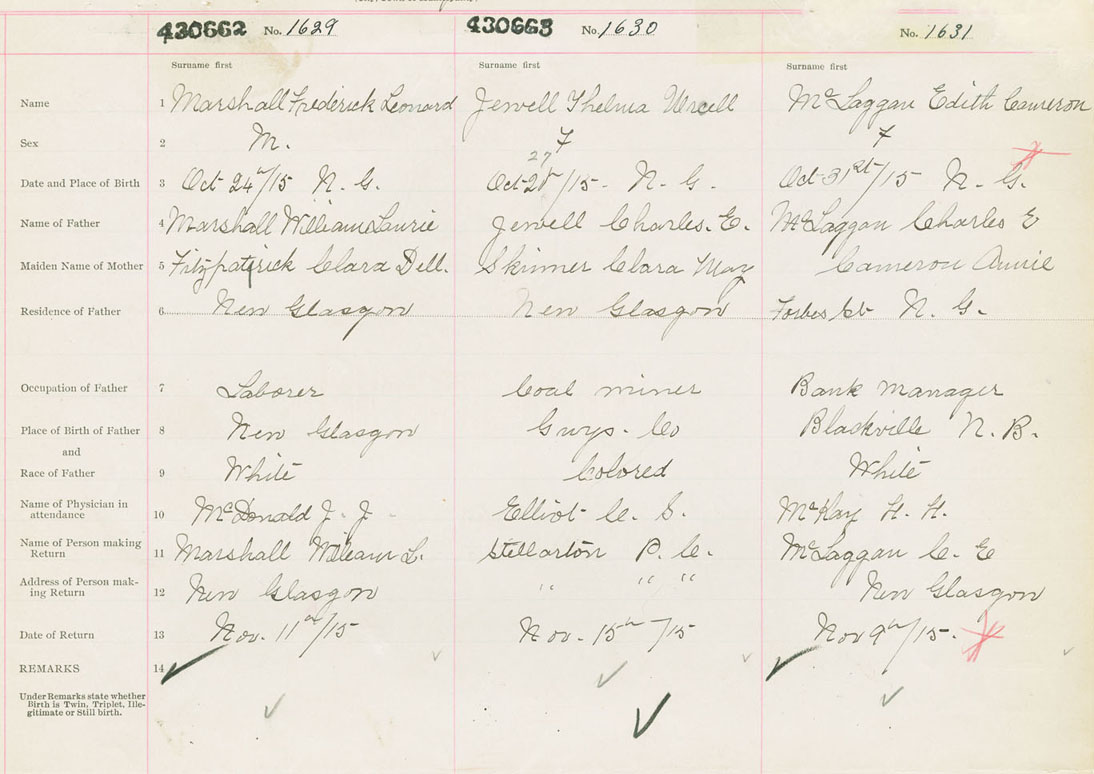 430662 No. 1629 430663 No. 1630 No. 1631
Surname first Surname first Surname first
Name 1 Marshall Frederick Leonard Jewell Thelma McLaggan Edith Cameron
Sex 2 M. F F
27
Date and Place of Birth 3 Oct 24th/15 N. G. Oct /15 - N. G. Oct 31st/15 N. G.
Name of Father 4 Marshall William Laurie Jewell Charles. E. McLaggan Charles E
Maiden Name of Mother 5 Fitzpatrick Clara Dell. Skinner Clara May Cameron Annie
Residence of Father 6 New Glasgow New Glasgow Forbes St N. G.
Occupation of Father 7 Laborer Coal miner Bank manager
Place of Birth of Father 8 New Glasgow Guys. Co Blackville N. B.
and
Race of Father 9 White Colored White
Name of Physician in
attendance 10 McDonald J. J. Elliot C. S. McKay H. H.
Name of Person making
Return 11 Marshall William L. Stellarton P. C. McLaggan C. E
Address of Person mak-
ing Return 12 New Glasgow " " " New Glasgow
Date of Return 13 Nov. 11th/15 Nov. 15th/15 Nov 9th/15.
REMARKS 14
Under Remarks state whether
Birth is Twin, Triplet, Ille-
gitimate or Still birth.